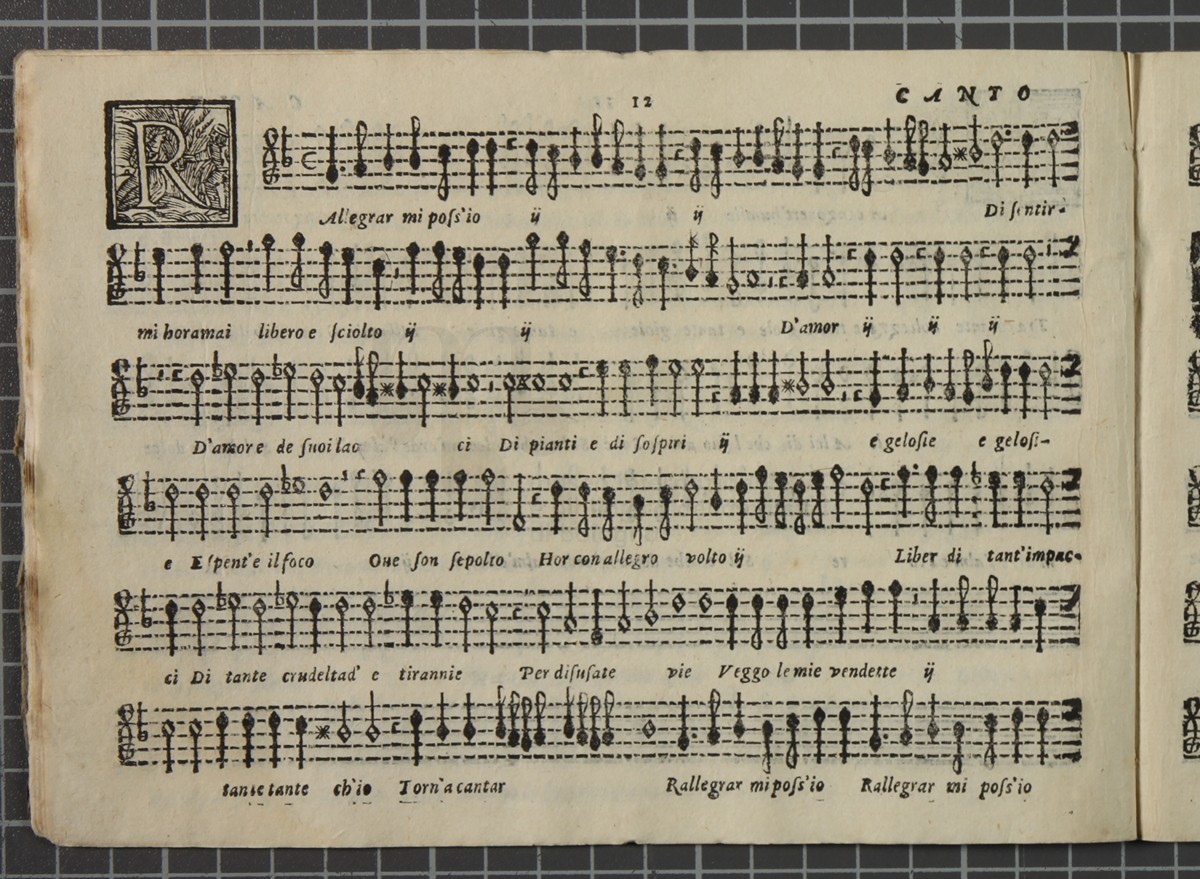 12 CANTO
RAllegrar mi poſs'io ij ij Di ſentir-
mi horamai libero e ſciolto ij ij D'amor ij ij ij
D'amore de ſuoi lac ci Di pianti e di ſoſpiri ij e geloſie e geloſi-
e E ſpent'e il foco Oue ſon ſepolto Hor con allegro volto ij Liber di tant'impac-
ci Di tante crudeltad' e tirannie Per diſuſate vie Veggo le mie vendette ij
tante tante ch'io Torn'a cantar Rallegrar mi poſs'io Rallegrar mi poſs'io